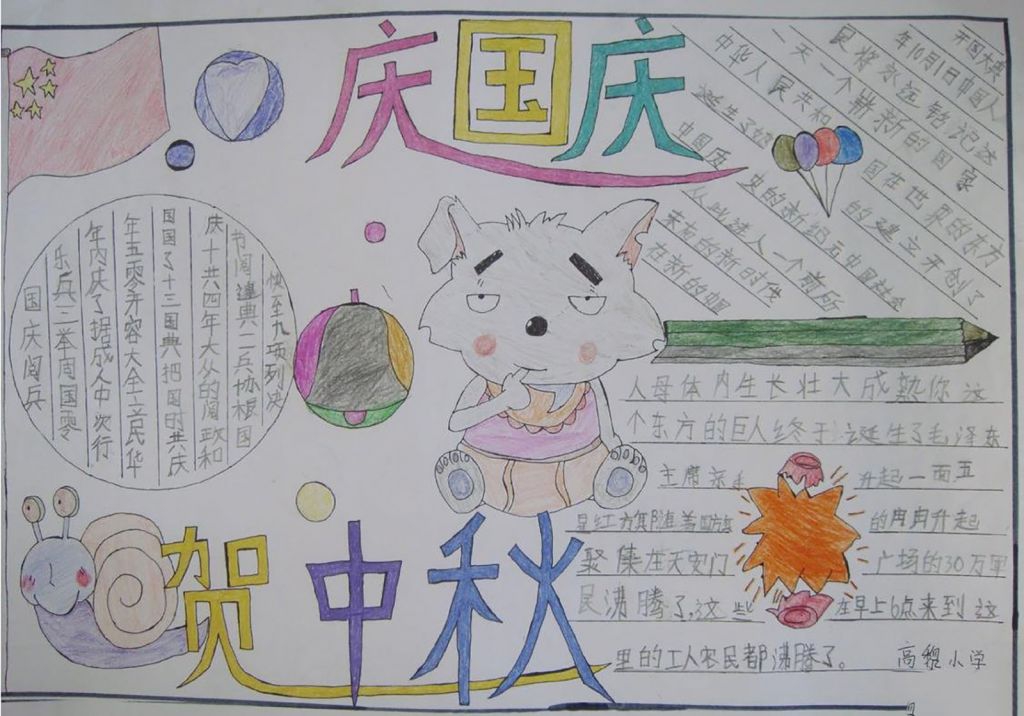 庆国庆
开国大典
年10月1日中国人
民将永远铭记这
一天一个崭新的国家
中华人民共和国在世界的东方
诞生了她的建立开创了
中国历史的新纪元中国社会
从此进入一个前所
未有的新时代
在新的
人母体内生长壮大成熟你这
个东方的巨人终于诞生了毛泽东
主席亲手升起一面五
星红旗随着国旗的冉冉升起
聚集在天安门广场的30万军
民沸腾了,这些在早上6点来到这
里的工人农民都沸腾了。
高稷小学
至九项列决
节阅典一兵协根国
庆十共四年大众的阅政和
国国了十三国典把国时共庆
年五零开容大全立民华
年内庆了据成人中次行
乐兵二举周国零
国庆阅兵
贺中秋